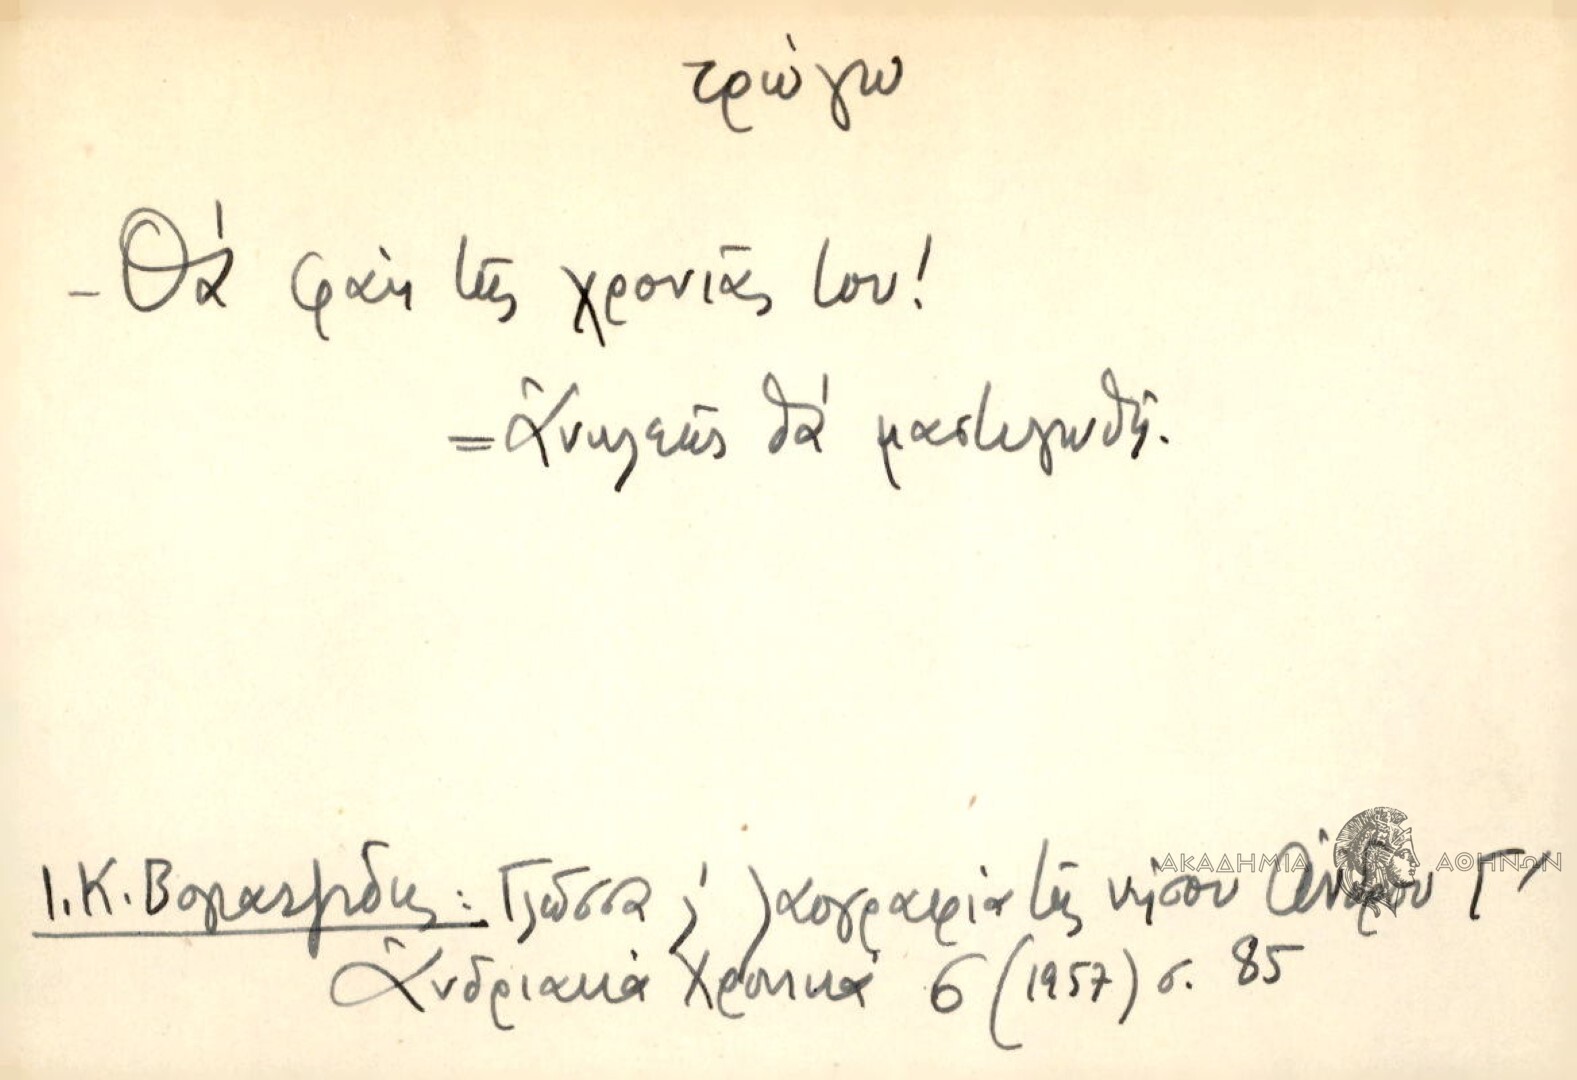 τρώγω
- Θά φάη τῆς χρονιᾶς του!
= Ἀνηλεῶς θά μαστιγωθῆ.
Ι. Κ. Βογιατζίδης: Γλῶσσα κ λαογραφία τῆς νήσου Ἄνδρου Γ'
Ἀνδριακά Χρονικά 6 (1957) σ. 85
ΑΚΑΔΗΜΙΑ ΑΘΗΝΩΝ